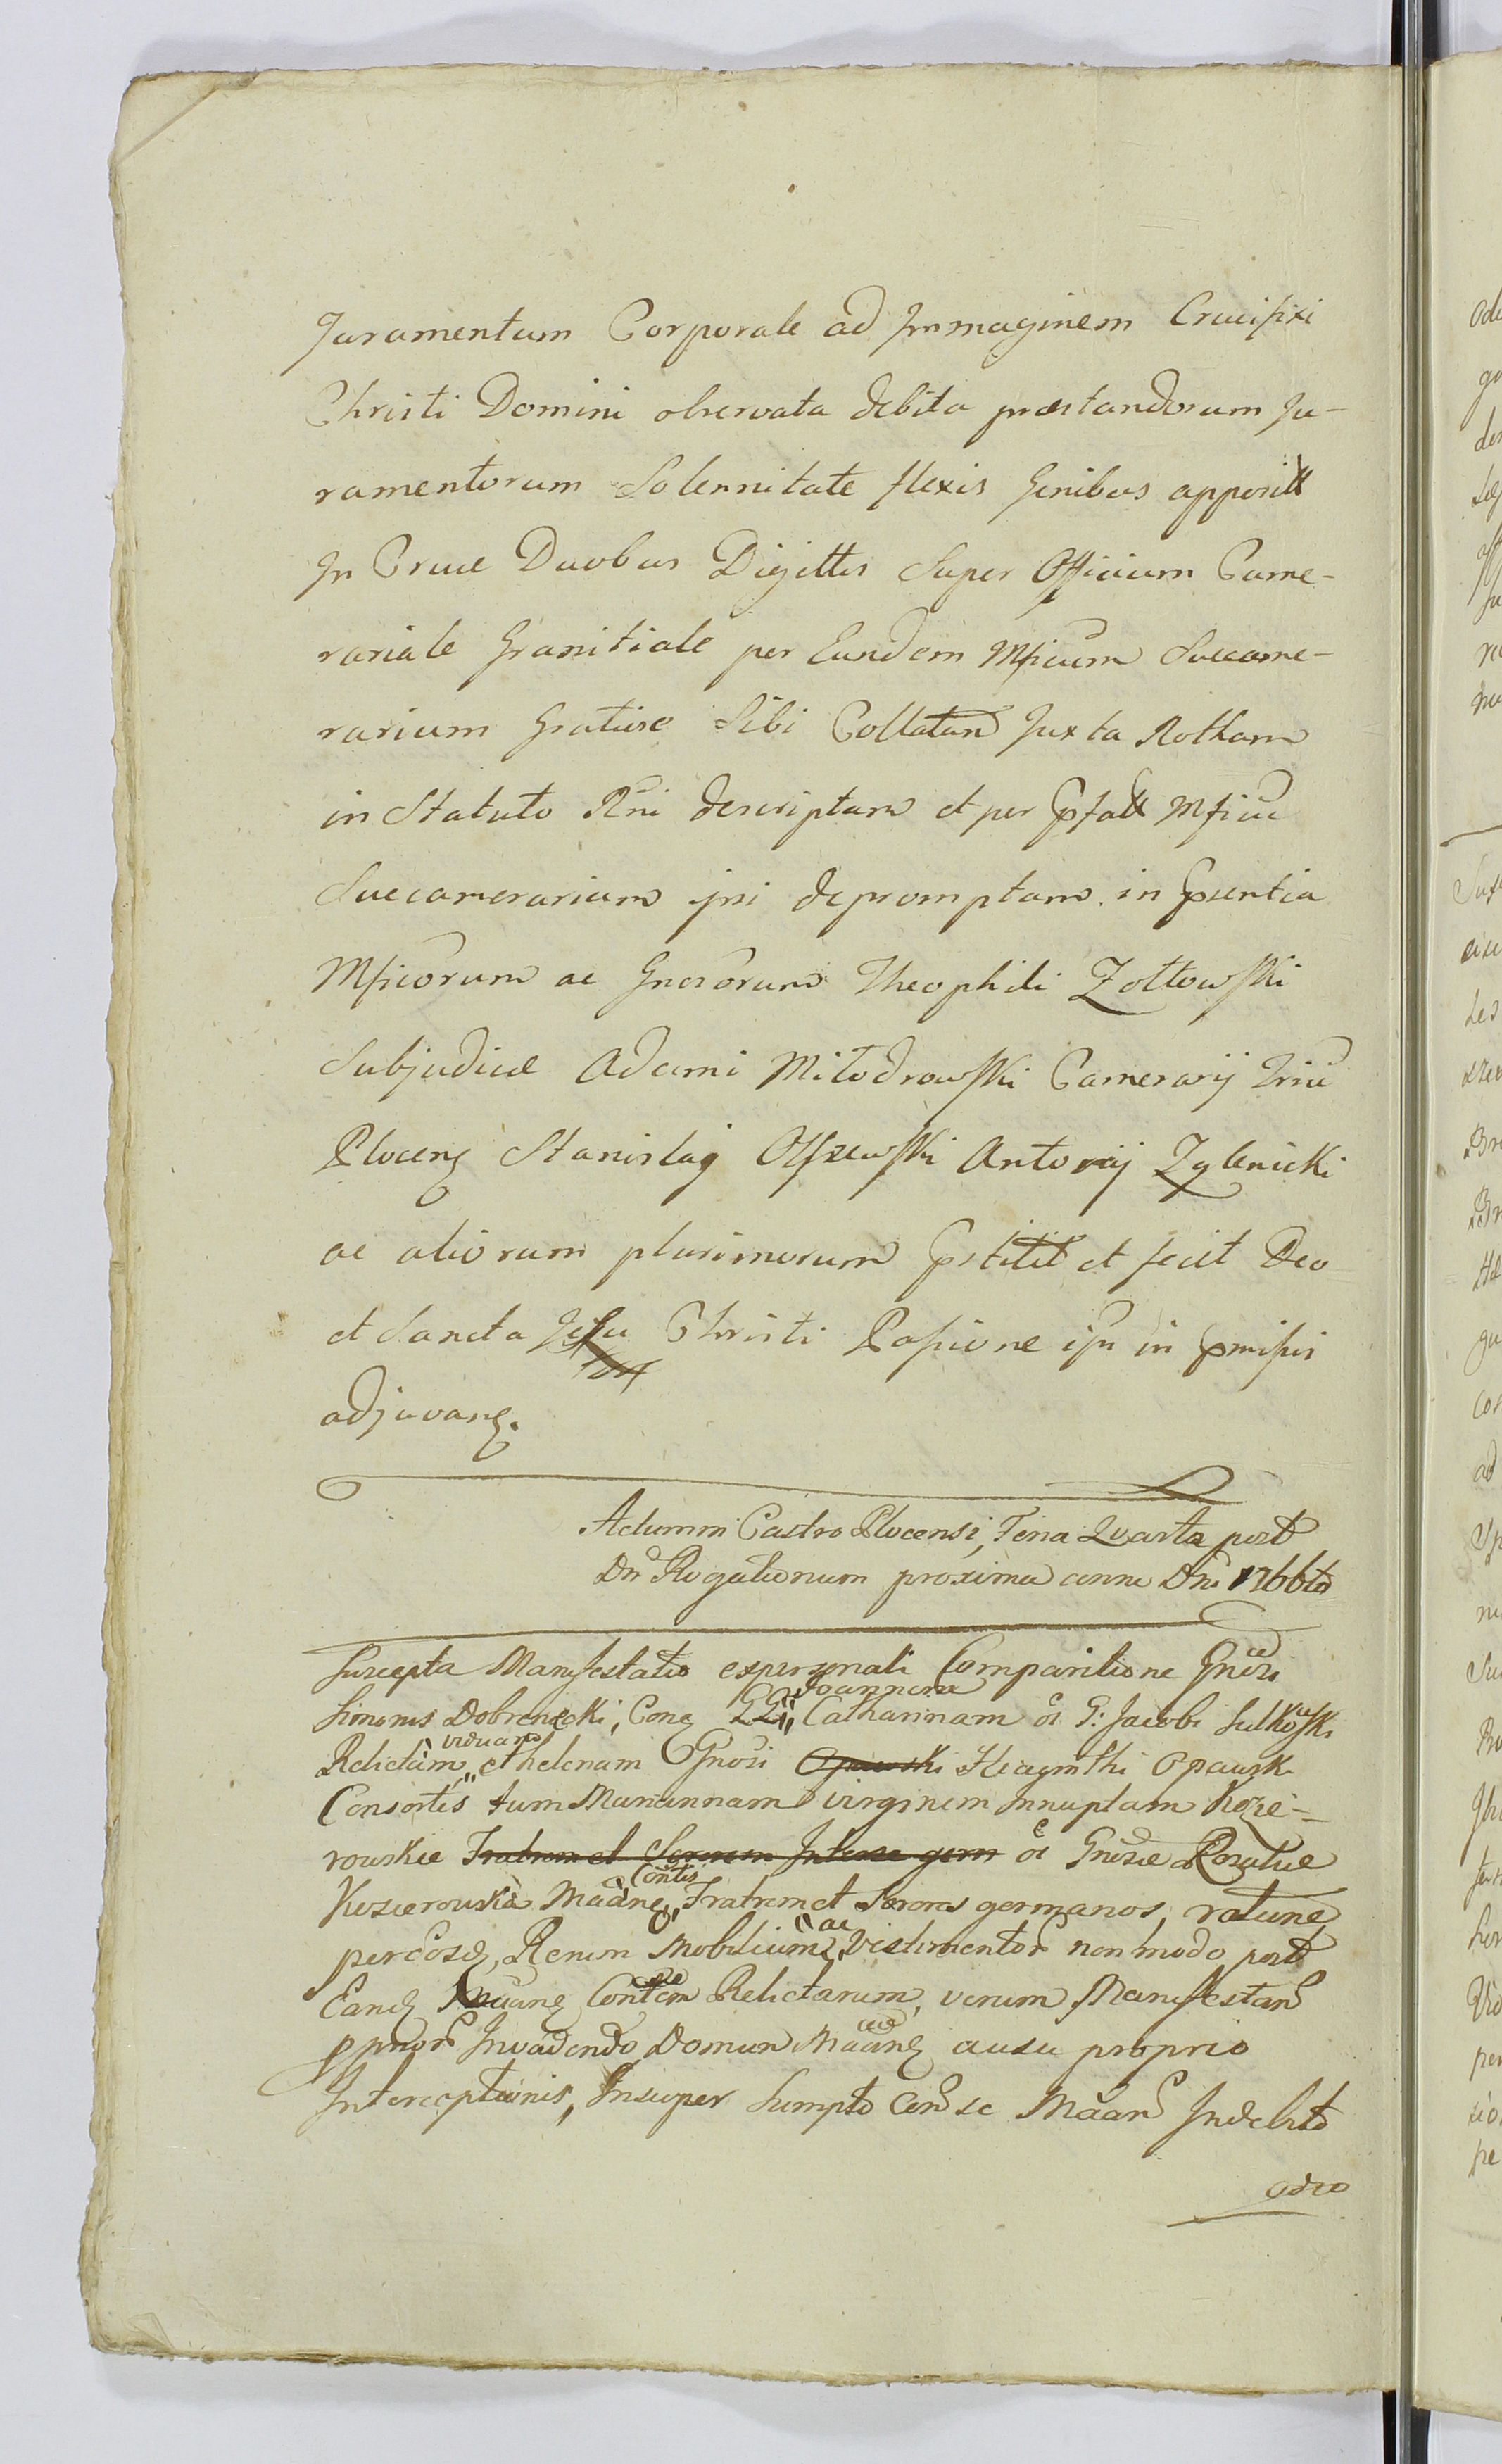 Juramentum Corporale ad Immaginem Crucifixi
Christi Domini observata debita præstandorum Ju-
ramentorum Solennitate flexis Genibus apposit
In Cruce Duobus Digittis Super Officium Came-
rariale Granitiale per Eundem Mficum Succame-
rarium Gratiose Sibi Collatum Juxta Rotham
in Statuto Rni descriptam et per Pfatt Mficu
Succamerarium ipsi depromptam in Psentia
Mficorum ac Gnosorum Theophili Zołtowski
Subjudicis Adami Miłodrowski Camerarij
Plocens Stanislaj Olszewski Antonij Zglenicki
ac aliorum plurimorum Pstitit et fecit Deo
et Sancta Jesu Christi Passione ipsu in Pmissis
adjuvan.
Actum in Castro Plocensi, Feria Quarta post
Dn Rogationum proxima anno Dni 1766to
Suscepta Manifestatio ex personali Comparitione Gnosi
Joannem
Simonis Dobrenecki, Con GG Catharinam G: Jacobi Sulkowski
viduam
Relictam, et helenam Gnosi Opawski Hiacynthi Opawski
Consortis tum Mariannam virginem Innuptam Kozie-
rowskie Fratrem et Sororem Inter se germ Gnosæ Rosaliæ
Kozierowska Fratrem et Sorores germanos, ratione
ac
Rerum Mobilium, Vestimentor non modo post
Relictarum, verum Manifestan
Invadendo Domum ausu proprio
Interceptionis, Insuper Sumpto Indebito
odio